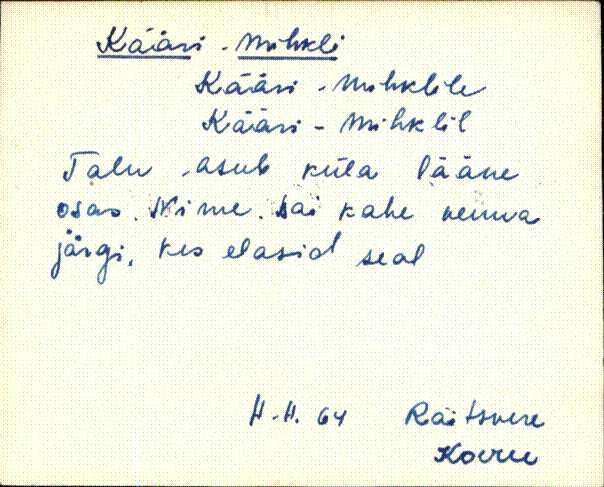 Kääri-Mihkli
Kääri-Mihklile
Kääri-Mihklil
Talu asub küla lääne
osas. Nime sai kahe venna
järgi, kes elasid seal
H.H. 64 Räitsvere
Koeru